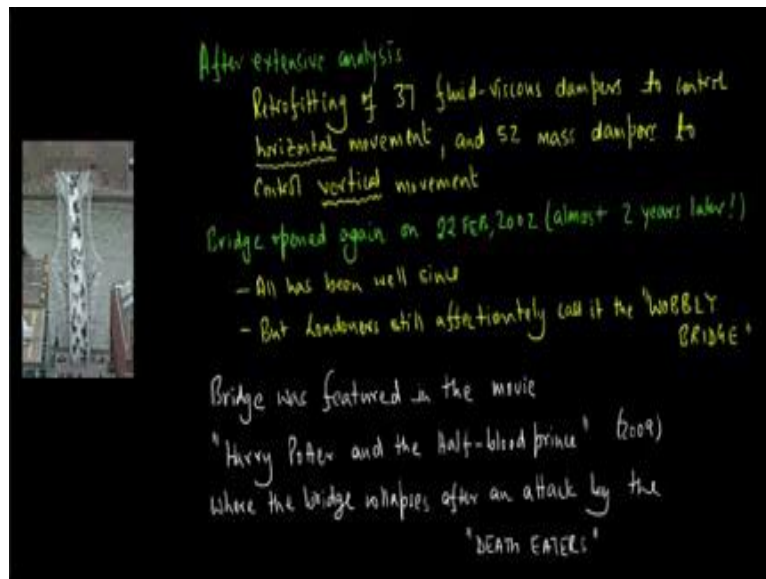 After extensive analysis
Retrofitting of 37 fluid-viscous dampers to control
horizontal movement, and 52 mass dampers to
control vertical movement
Bridge opened again on 22 FEB, 2002 (almost 2 years later!)
- All has been well since
- But Londoners still affectionately call it the "WOBBLY
BRIDGE"
Bridge was featured in the movie
"Harry Potter and the Half-blood prince" (2009)
where the bridge collapses after an attack by the
"DEATH EATERS"